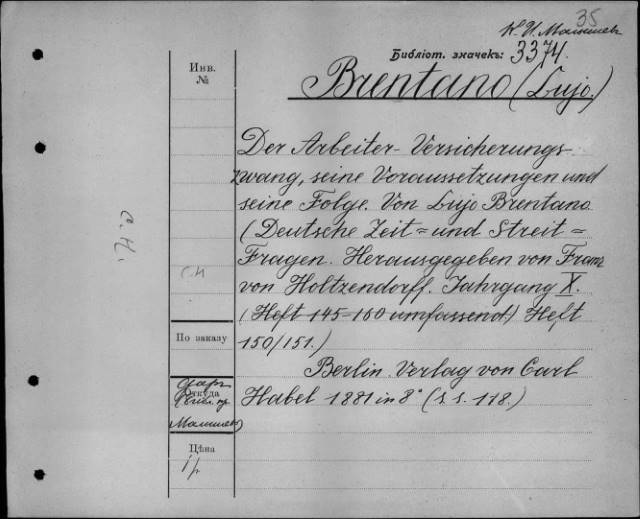 35
К. И. Малышев
Библіот. значекъ: 3374.
Инв.
№
Brentano (Lujo.)
Der Arbeiter-Versicherungs-
zwang, seine Voraussetzungen und
seine Folge. Von Lujo Brentano
(Deutsche Zeit= und Streit=
Fragen. Herausgegeben von Franz
von Holtzendorff. Jahrgang X.
(Heft 145=160 umfassend) Heft
150/151.)
Berlin. Verlag von Carl
Habel 1881 in 8° (s. s. 118.)
С.И
По заказу
Откуда
Малышев
Цѣна
1 р